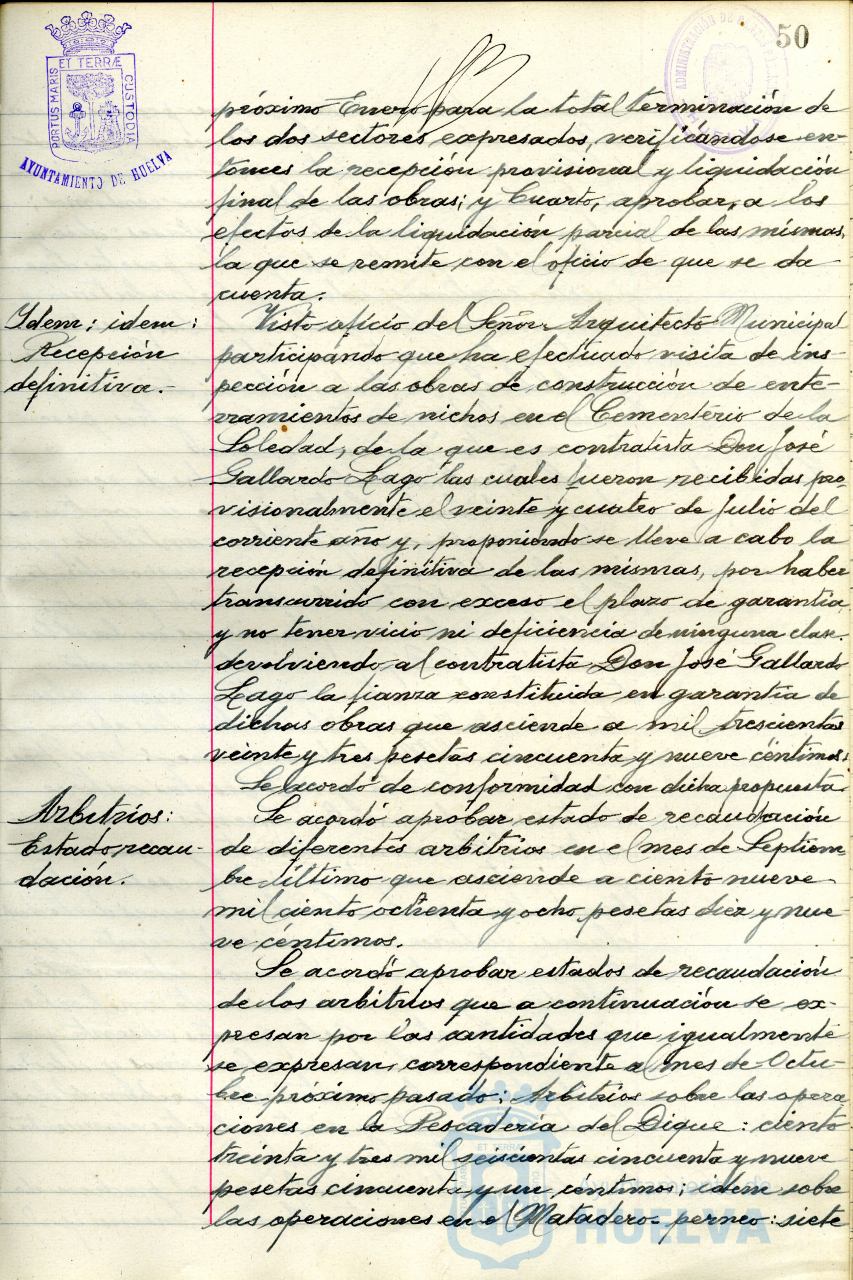 50
PORTUS MARIS ET TERRÆ CUSTODIA
AYUNTAMIENTO DE HUELVA
próximo Enero para la total terminación de
los dos sectores expresados, verificándose en-
tonces la recepción provisional y liquidación
final de las obras; y Cuarto, aprobar, a los
efectos de la liquidación parcial de las mismas,
la que se remite con el oficio de que se da
cuenta.
Idem: idem:
Recepción
definitiva.-
Visto oficio del Señor Arquitecto Municipal
participando que ha efectuado visita de ins-
pección a las obras de construcción de ente-
rramientos de nichos en el Cementerio de la
Soledad, de la que es contratista Don José
Gallardo Lago las cuales fueron recibidas pro-
visionalmente el veinte y cuatro de Julio del
corriente año y, proponiendo se lleve a cabo la
recepción definitiva de las mismas, por haber
transcurrido con exceso el plazo de garantía
y no tener vicio ni deficiencia de ninguna clase.
devolviendo al contratista Don José Gallardo
Lago la fianza constituida en garantía de
dichas obras que asciende a mil trescientas
veinte y tres pesetas cincuenta y nueve céntimos.
Se acordó de conformidad con dicha propuesta.
Arbitrios:
Estado, recau-
dación.
Se acordó aprobar estado de recaudación
de diferentes arbitrios en el mes de Septiem-
bre último que asciende a ciento nueve
mil ciento ochenta y ocho pesetas diez y nue-
ve céntimos.
Se acordó aprobar estados de recaudación
de los arbitrios que a continuación se ex-
presan por las cantidades que igualmente
se expresan, correspondiente al mes de Octu-
bre próximo pasado: Arbitrios sobre las opera-
ciones en la Pescadería del Dique: ciento
treinta y tres mil seiscientas cincuenta y nueve
pesetas cincuenta y un centimos; idem sobre
las operaciones en el Matadero - perneo: siete
Ayuntamiento de
HUELVA